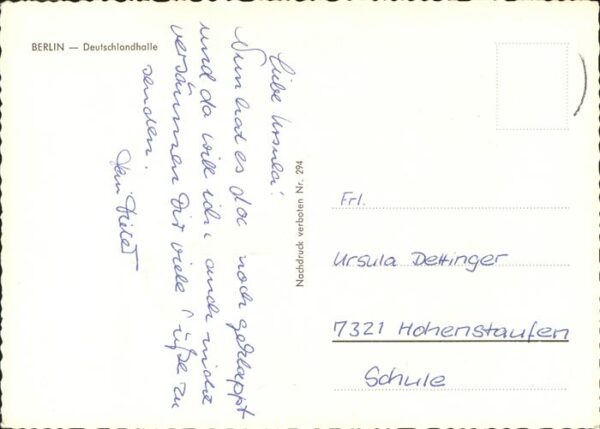 BERLIN — Deutschlandhalle
Liebe Ursula!
Nun hat es doch noch geklappt
und da will ich auch nicht
versäumen Dir viele Grüße zu
senden.
Dein Dieter
Nachdruck verboten Nr. 294
Frl.
Ursula Dettinger
7321 Hohenstaufen
Schule